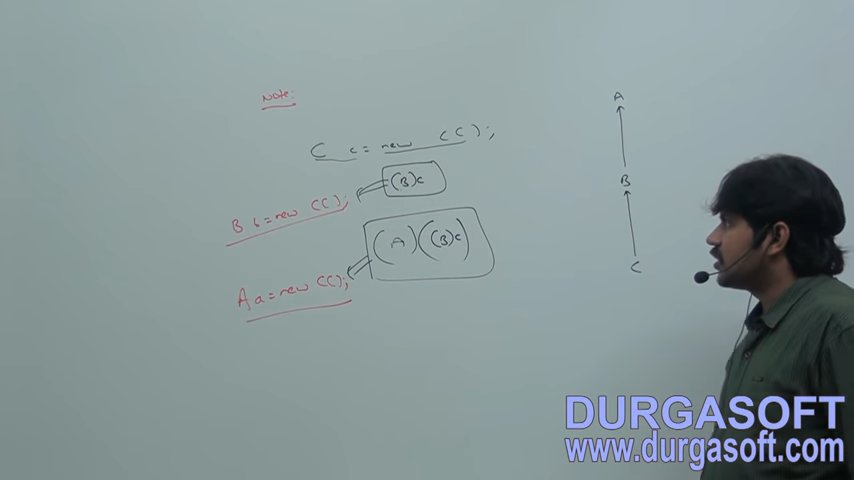 Note:
A
C c = new C();
(B)c
B
B b = new C();
(A)((B)c)
C
A a = new C();
DURGASOFT
www.durgasoft.com